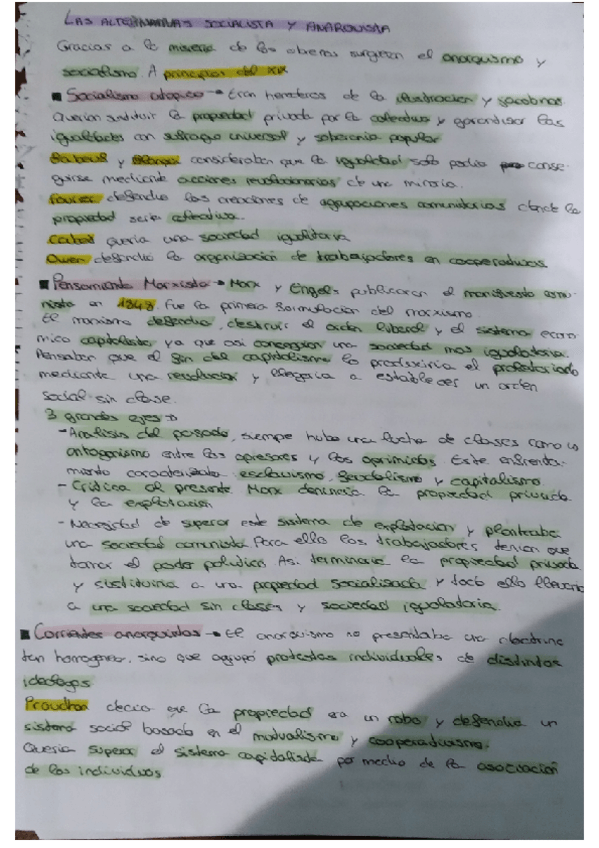 LAS ALTERNATIVAS SOCIALISTA Y ANARQUISTA
Gracias a la miseria de los obreros surgieron el anarquismo y
socialismo. A principios del XIX
■ Socialismo utópico → Eran herederos de la ilustracion y jacobinos
Querian sustituir la propiedad privada por la colectiva y garantizar las
igualdades con sufragio universal y soberania popular
Babeuf y Blanqui consideraban que la igualdad solo podia conse-
guirse mediante acciones revolucionarias de una minoria.
Fourier defendia las creaciones de agrupaciones comunitarias donde la
propiedad seria colectiva.
Cabet queria una sociedad igualitaria
Owen defendia la organizacion de trabajadores en cooperativas
■ Pensamiento Marxista → Marx y Engels publicaron el manifiesto comu-
nista en 1848. Fue la primera formulacion del marxismo
El marxismo defendia, destruir el orden liberal y el sistema econ
mico capitalista, ya que asi conseguian una sociedad mas igualataria.
Pensaban que el fin del capitalismo lo produciria el proletariado
mediante una revolucion y llegaria a establecer un orden
social sin clase.
3 grandes ejes →
- Analisis del pasado, siempre hubo una lucha de clases como
antagonismo entre los opresores y los oprimidos. Este enfrenta-
miento caracterizaba esclavismo, feudalismo y capitalismo
- Critica al presente Marx denuncia la propiedad privada
y la explotacion
- Necesidad de superar este sistema de explotacion y planteaba
una sociedad comunista. Para ello los trabajadores tenian que
tomar el poder politico. Asi terminaria la propiedad privada
y sustituiria a una propiedad socializada y todo ello llevaria
a una sociedad sin clases y sociedad igualataria.
■ Corrientes anarquistas → El anarquismo no presentaba una doctrina
tan homogenea, sino que agrupó protestas individuales de distintos
ideologos
Proudhon decia que la propiedad era un robo y defendia un
sistema social basado en el mutualismo y cooperativismo.
Queria superar el sistema capitalista por medio de la asociacion
de los individuos